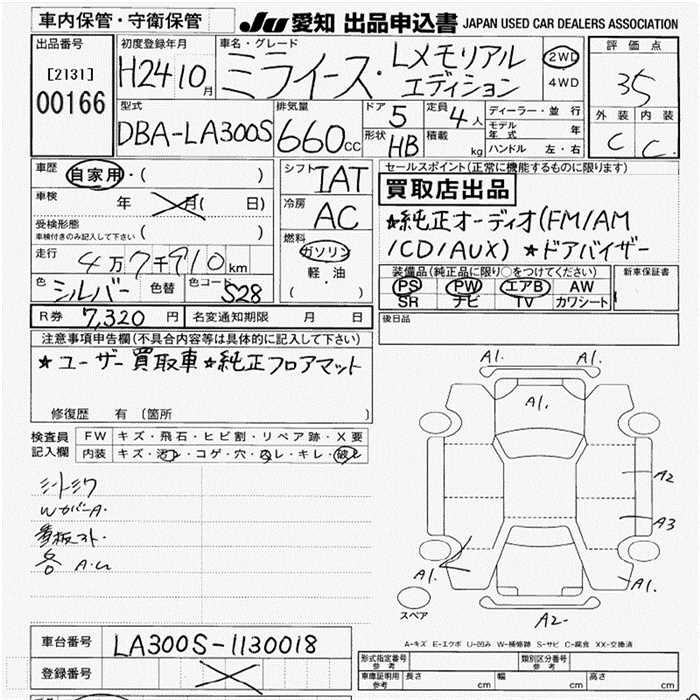 車内保管・守衛保管
JU 愛知 出品申込書 JAPAN USED CAR DEALERS ASSOCIATION
出品番号
[2131]
00166
初度登録年月
H24 10月
車名・グレード
ミライース・Lメモリアル
エディション
2WD
4WD
評価点
35
外装 内装
C C
型式
DBA-LA300S
排気量
660cc
ドア 5
形状 HB
定員 4人
積載 kg
ディーラー・並行
モデル年式 年
ハンドル 左・右
車歴 自家用・( )
車検 年 月( 日)
受検形態
車検付きのみ記入して下さい ( )
走行 4万7千910km
色 シルバー 色替 色コード S28
R券 7,320円 名変通知期限 月 日
シフト IAT
冷房 AC
燃料
ガソリン
軽・油
( )
セールスポイント(正常に機能するものに限ります)
買取店出品
★純正オーディオ(FM/AM
/CD/AUX) ★ドアバイザー
装備品(純正品に限り○をつけてください)
PS PW エアB AW
SR ナビ TV カワシート
新車保証書
後日品
注意事項申告欄(不具合内容等は具体的に記入して下さい)
★ユーザー買取車★純正フロアマット
修復歴 有 (箇所 )
検査員記入欄
FW キズ・飛石・ヒビ割・リペア跡・X要
内装 キズ・汚レ・コゲ・穴・凹レ・キレ・破レ
シートシワ
WカバーA.
看板スト.
各 A.U
A1. A1.
A1.
A2
A3
A1. A1.
A2-
スペア
A-キズ E-エクボ U-凹み W-補修跡 S-サビ C-腐食 XX-交換済
車台番号 LA300S-1130018
登録番号
型式指定番号 参考
類別区分番号 参考
車庫証明用 参考
長さ cm 幅 cm 高さ cm